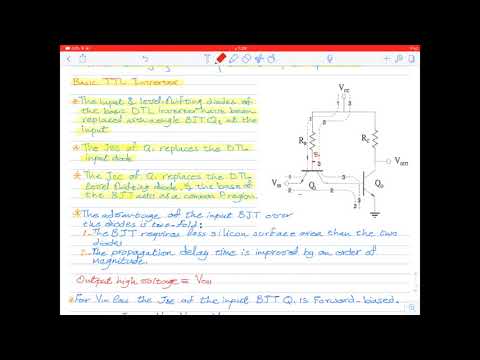 Basic TTL Inverter
* The input & level-shifting diodes of
the basic DTL inverter have been
replaced with a single BJT Q1 at the
input
* The JBE of Q1 replaces the DTL-
input diode
* The JBC of Q1 replaces the DTL-
Level shifting diode, & the base of
the BJT acts as a common P region.
* The advantage of the input BJT over
the diodes is two-fold:
1- The BJT requires less silicon surface area than the two
diodes
2- The propagation delay time is improved by an order of
magnitude.
Output high voltage = VOH
* For Vin low the JBE of the input BJT Q1 is Forward-biased.
VCC
RB
RC
VOUT
VIN
QI
QO